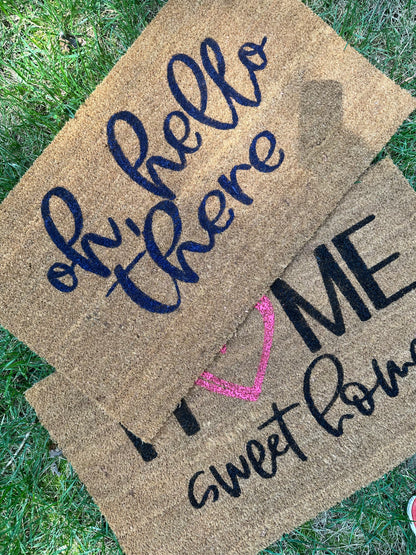 oh, hello
there
HOME
sweet home